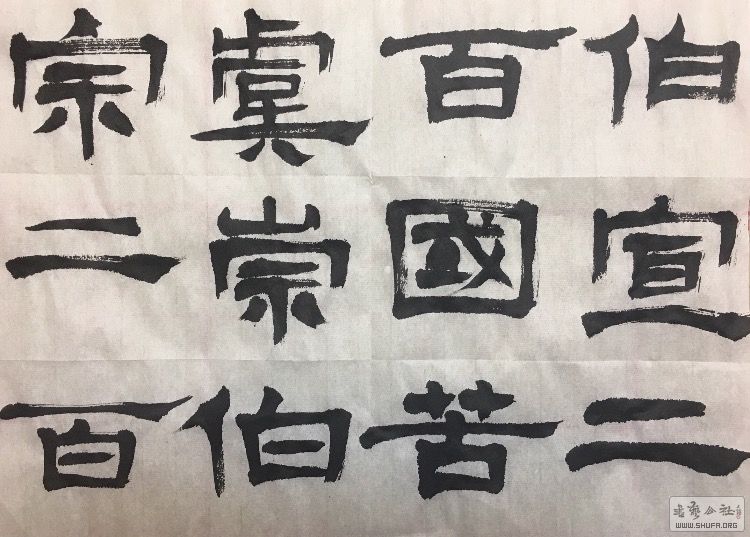 伯宣二
百國苦
虞崇伯
宗二百
书艺公社
WWW.SHUFA.ORG